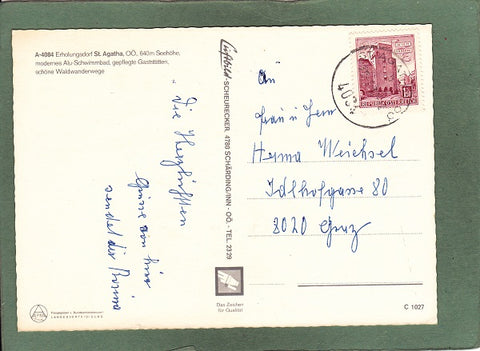 A-4084 Erholungsdorf St. Agatha, OÖ., 640m Seehöhe,
modernes Alu-Schwimmbad, gepflegte Gaststätten,
schöne Waldwanderwege
Die herzlichsten
Grüsse von hier
sendet die
Luftbild-SCHEURECKER, 4780 SCHÄRDING/INN - OÖ. - TEL. 2339
An
Frau u Herrn
Weichsel
Idlhofgasse 80
8020 Graz
REPUBLIK ÖSTERREICH
Das Zeichen
für Qualität
C 1027